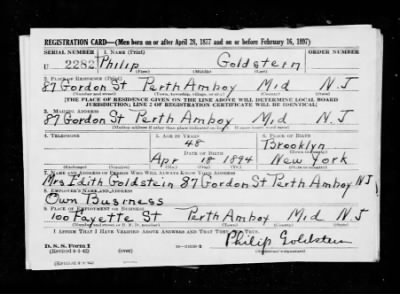 REGISTRATION CARD—(Men born on or after April 28, 1877 and on or before February 16, 1897)
SERIAL NUMBER 1. NAME (Print) ORDER NUMBER
U 2282 Philip Goldstein
(First) (Middle) (Last)
2. PLACE OF RESIDENCE (Print)
87 Gordon St Perth Amboy Mid NJ
(Number and street) (Town, township, village, or city) (County) (State)
[THE PLACE OF RESIDENCE GIVEN ON THE LINE ABOVE WILL DETERMINE LOCAL BOARD
JURISDICTION; LINE 2 OF REGISTRATION CERTIFICATE WILL BE IDENTICAL]
3. MAILING ADDRESS
87 Gordon St Perth Amboy Mid NJ
4. TELEPHONE 5. AGE IN YEARS 6. PLACE OF BIRTH
48 Brooklyn
DATE OF BIRTH (Town or county)
Apr 18 1894 New York
(Exchange) (Number) (Mo.) (Day) (Yr.) (State or country)
7. NAME AND ADDRESS OF PERSON WHO WILL ALWAYS KNOW YOUR ADDRESS
Mrs Edith Goldstein 87 Gordon St Perth Amboy NJ
8. EMPLOYER'S NAME AND ADDRESS
Own Business
9. PLACE OF EMPLOYMENT OR BUSINESS
100 Fayette St Perth Amboy Mid NJ
(Number and street or R. F. D. number) (Town) (County) (State)
I AFFIRM THAT I HAVE VERIFIED ABOVE ANSWERS AND THAT THEY ARE TRUE.
D. S. S. Form 1
(Revised 4-1-42)
Philip Goldstein